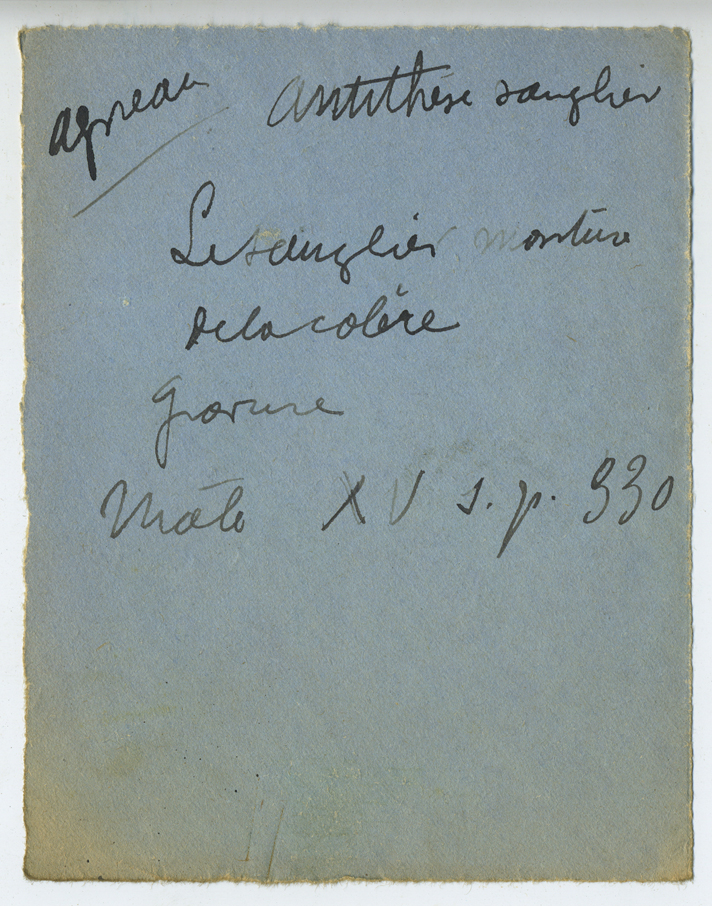 agneau Antithèse sanglier
Le sanglier, monture
de la colère
gravure
Mâle XV s. p. 330